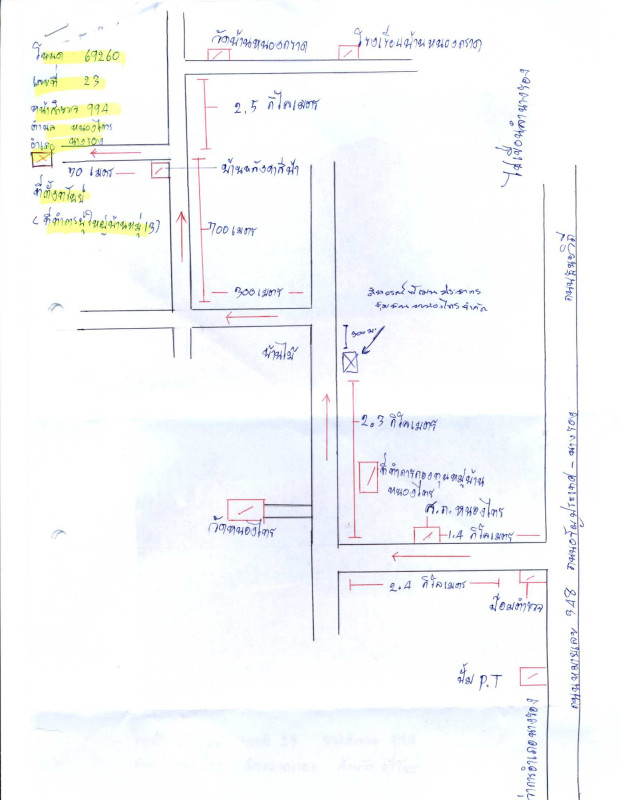 โฉนด 69260
เลขที่ 23
หน้าสำรวจ 994
ตำบล หนองไทร
อำเภอ นางรอง
70 เมตร
ที่ตั้งทรัพย์
(ที่ทำการผู้ใหญ่บ้านหมู่ 13)
วัดบ้านหนองกราด
โรงเรียนบ้านหนองกราด
2.5 กิโลเมตร
บ้านหลังคาสีฟ้า
700 เมตร
300 เมตร
บ้านไม้
ไปเขื่อนลำนางรอง
300 ม.
2.3 กิโลเมตร
ที่ทำการกองทุนหมู่บ้าน
หนองไทร
วัดหนองไทร
ส.ต. หนองไทร
1.4 กิโลเมตร
2.4 กิโลเมตร
ป้อมตำรวจ
ปั๊ม P.T
ว่าการอำเภอนางรอง
ถนนหมายเลข 348 ถนนอรัญประเทศ - นางรอง